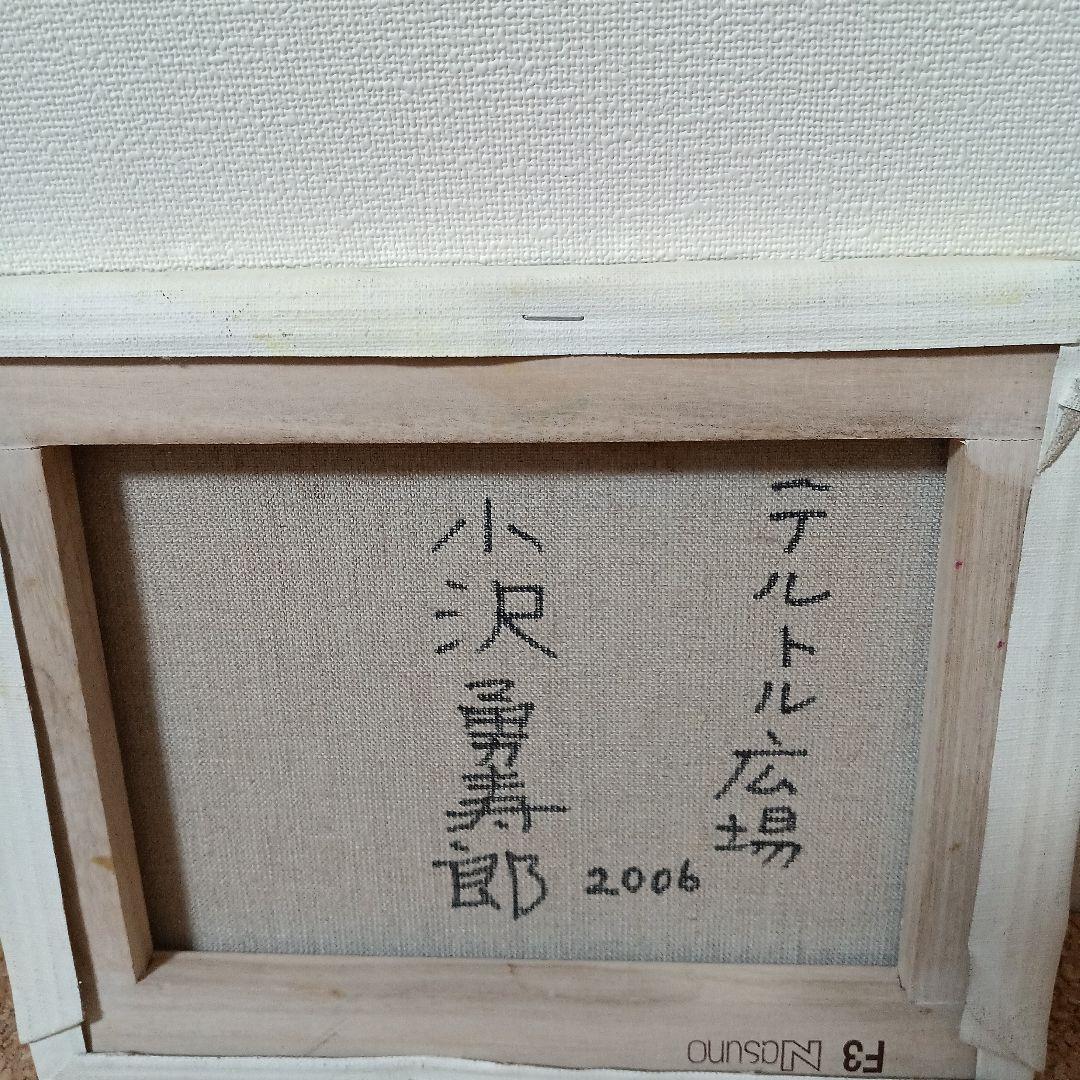 テルトル広場
小沢勇寿郎
2006
F3 Nasuno